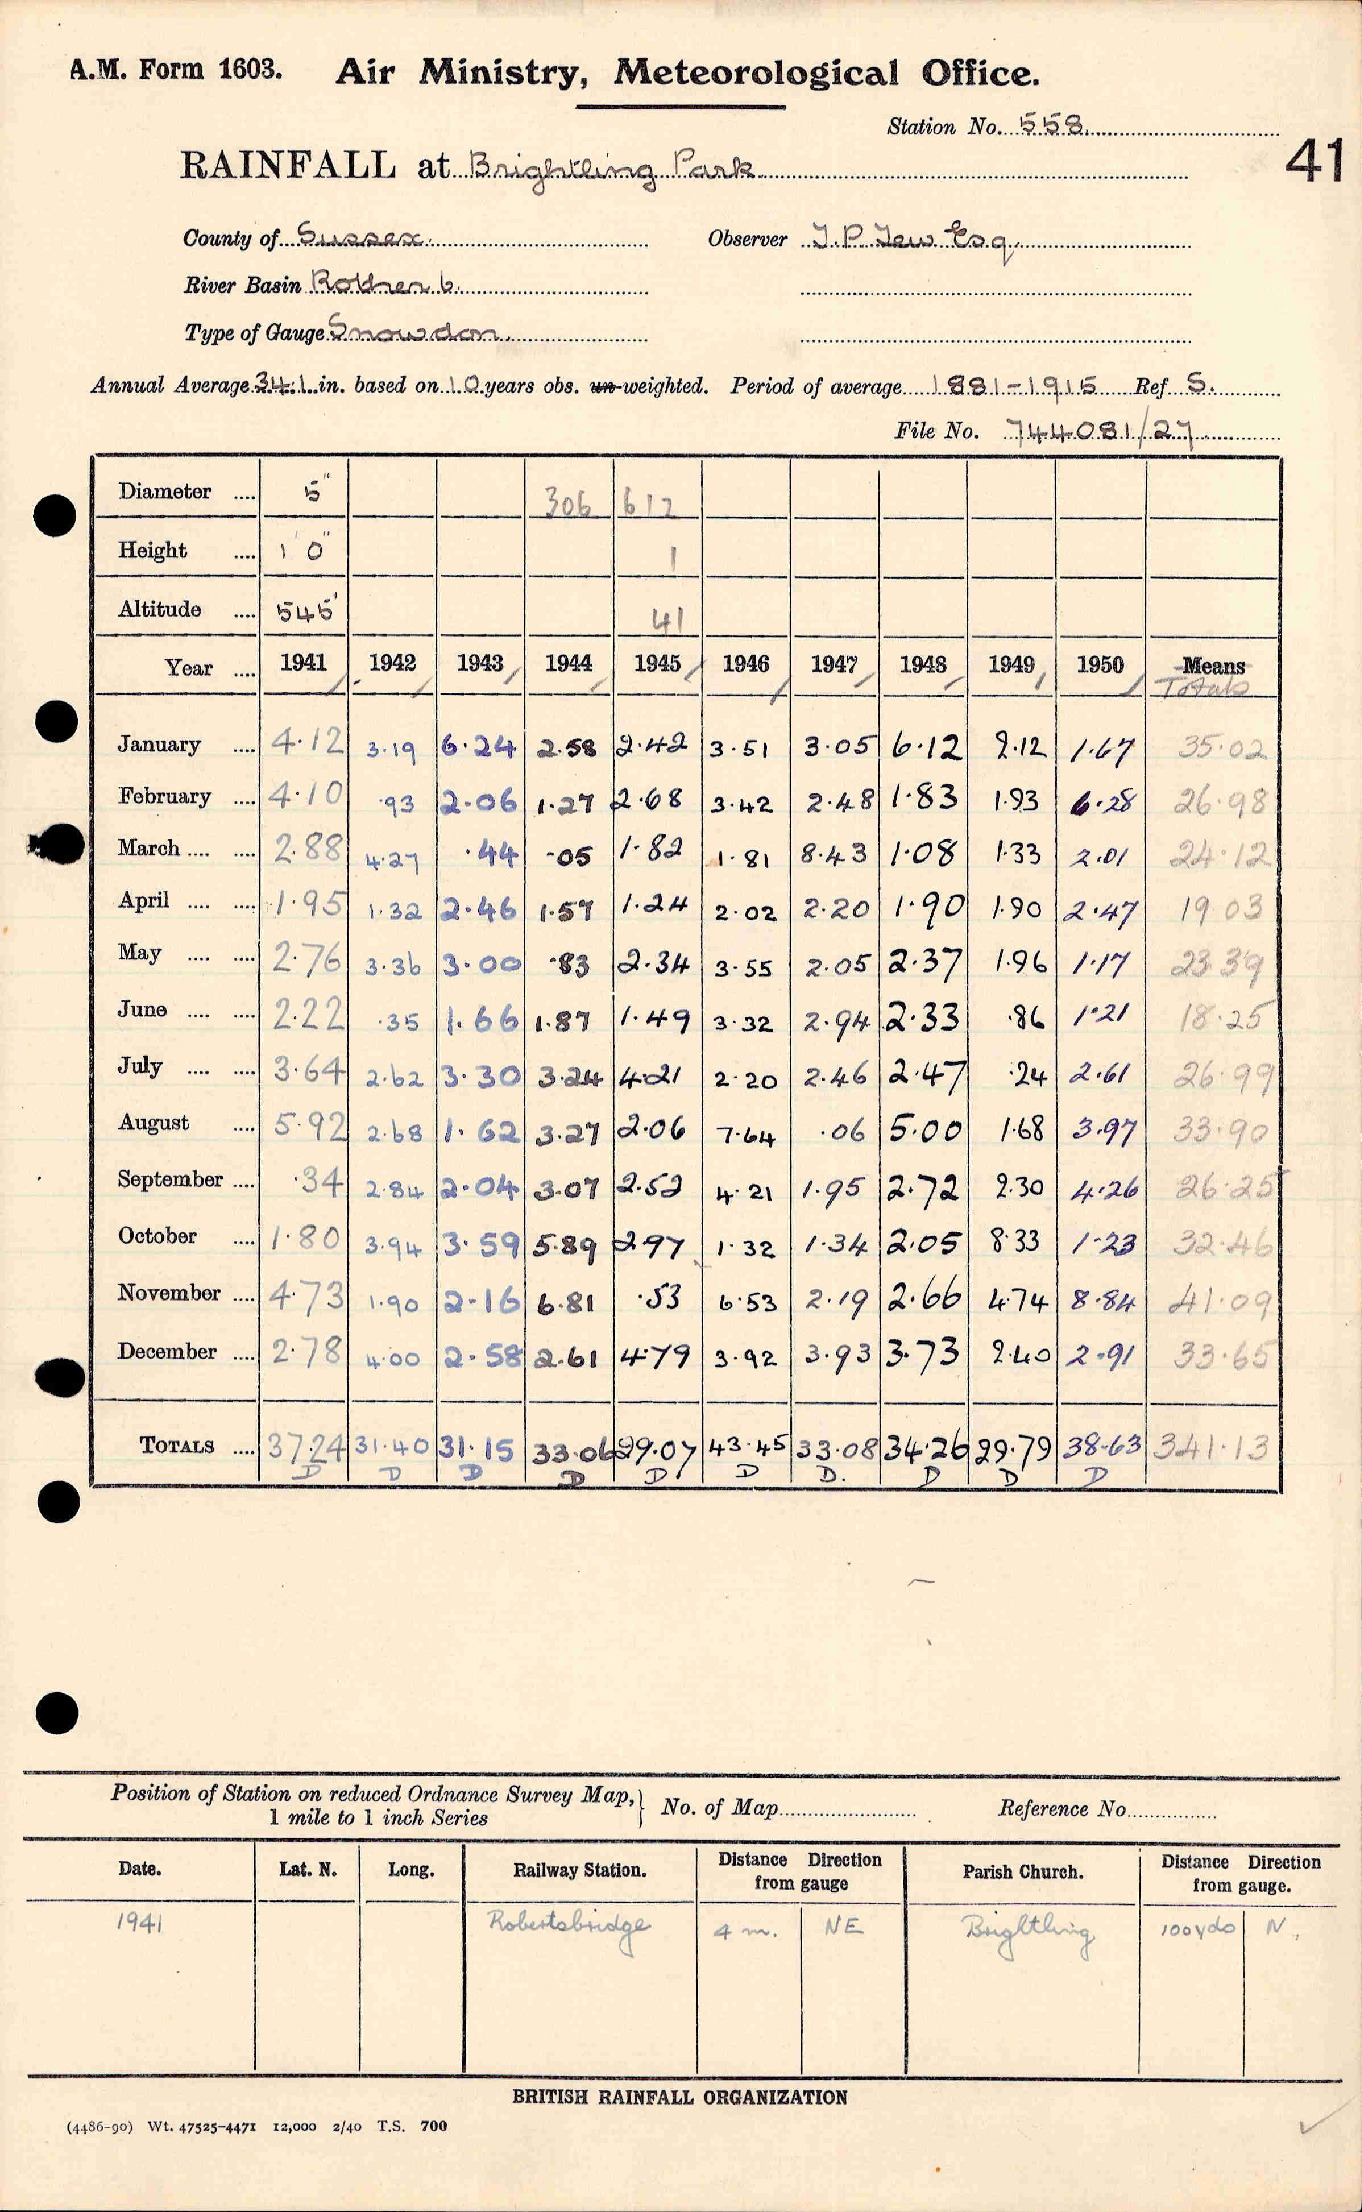 A.M. Form 1603. Air Ministry, Meteorological Office.
Station No. 558.
41
RAINFALL at Brightling Park
County of Sussex. Observer J. P. Tew Esq.
River Basin Rother 6.
Type of Gauge Snowdon.
Annual Average 34.1 in. based on 10 years obs. un-weighted. Period of average 1881-1915 Ref S.
File No. 744081/27
Diameter .... 5" 306 612
Height .... 1' 0" 1
Altitude .... 545' 41
Year .... 1941 1942 1943 1944 1945 1946 1947 1948 1949 1950 Means
Totals
January .... 4.12 3.19 6.24 2.58 2.42 3.51 3.05 6.12 2.12 1.67 35.02
February .... 4.10 .93 2.06 1.27 2.68 3.42 2.48 1.83 1.93 6.28 26.98
March .... .... 2.88 4.27 .44 .05 1.82 1.81 8.43 1.08 1.33 2.01 24.12
April .... .... 1.95 1.32 2.46 1.57 1.24 2.02 2.20 1.90 1.90 2.47 19.03
May .... .... 2.76 3.36 3.00 .83 2.34 3.55 2.05 2.37 1.96 1.17 23.39
June .... .... 2.22 .35 1.66 1.87 1.49 3.32 2.94 2.33 .86 1.21 18.25
July .... .... 3.64 2.62 3.30 3.24 4.21 2.20 2.46 2.47 .24 2.61 26.99
August .... 5.92 2.68 1.62 3.27 2.06 7.64 .06 5.00 1.68 3.97 33.90
September .... .34 2.84 2.04 3.07 2.52 4.21 1.95 2.72 2.30 4.26 26.25
October .... 1.80 3.94 3.59 5.89 2.97 1.32 1.34 2.05 8.33 1.23 32.46
November .... 4.73 1.90 2.16 6.81 .53 6.53 2.19 2.66 4.74 8.84 41.09
December .... 2.78 4.00 2.58 2.61 4.79 3.92 3.93 3.73 2.40 2.91 33.65
TOTALS .... 37.24 31.40 31.15 33.06 29.07 43.45 33.08 34.26 29.79 38.63 341.13
D D D D D D D. D D D
Position of Station on reduced Ordnance Survey Map, 1 mile to 1 inch Series } No. of Map Reference No.
Date. Lat. N. Long. Railway Station. Distance Direction from gauge Parish Church. Distance Direction from gauge.
1941 Robertsbridge 4 m. NE Brightling 100 yds N.
BRITISH RAINFALL ORGANIZATION
(4486-90) Wt. 47525-4471 12,000 2/40 T.S. 700